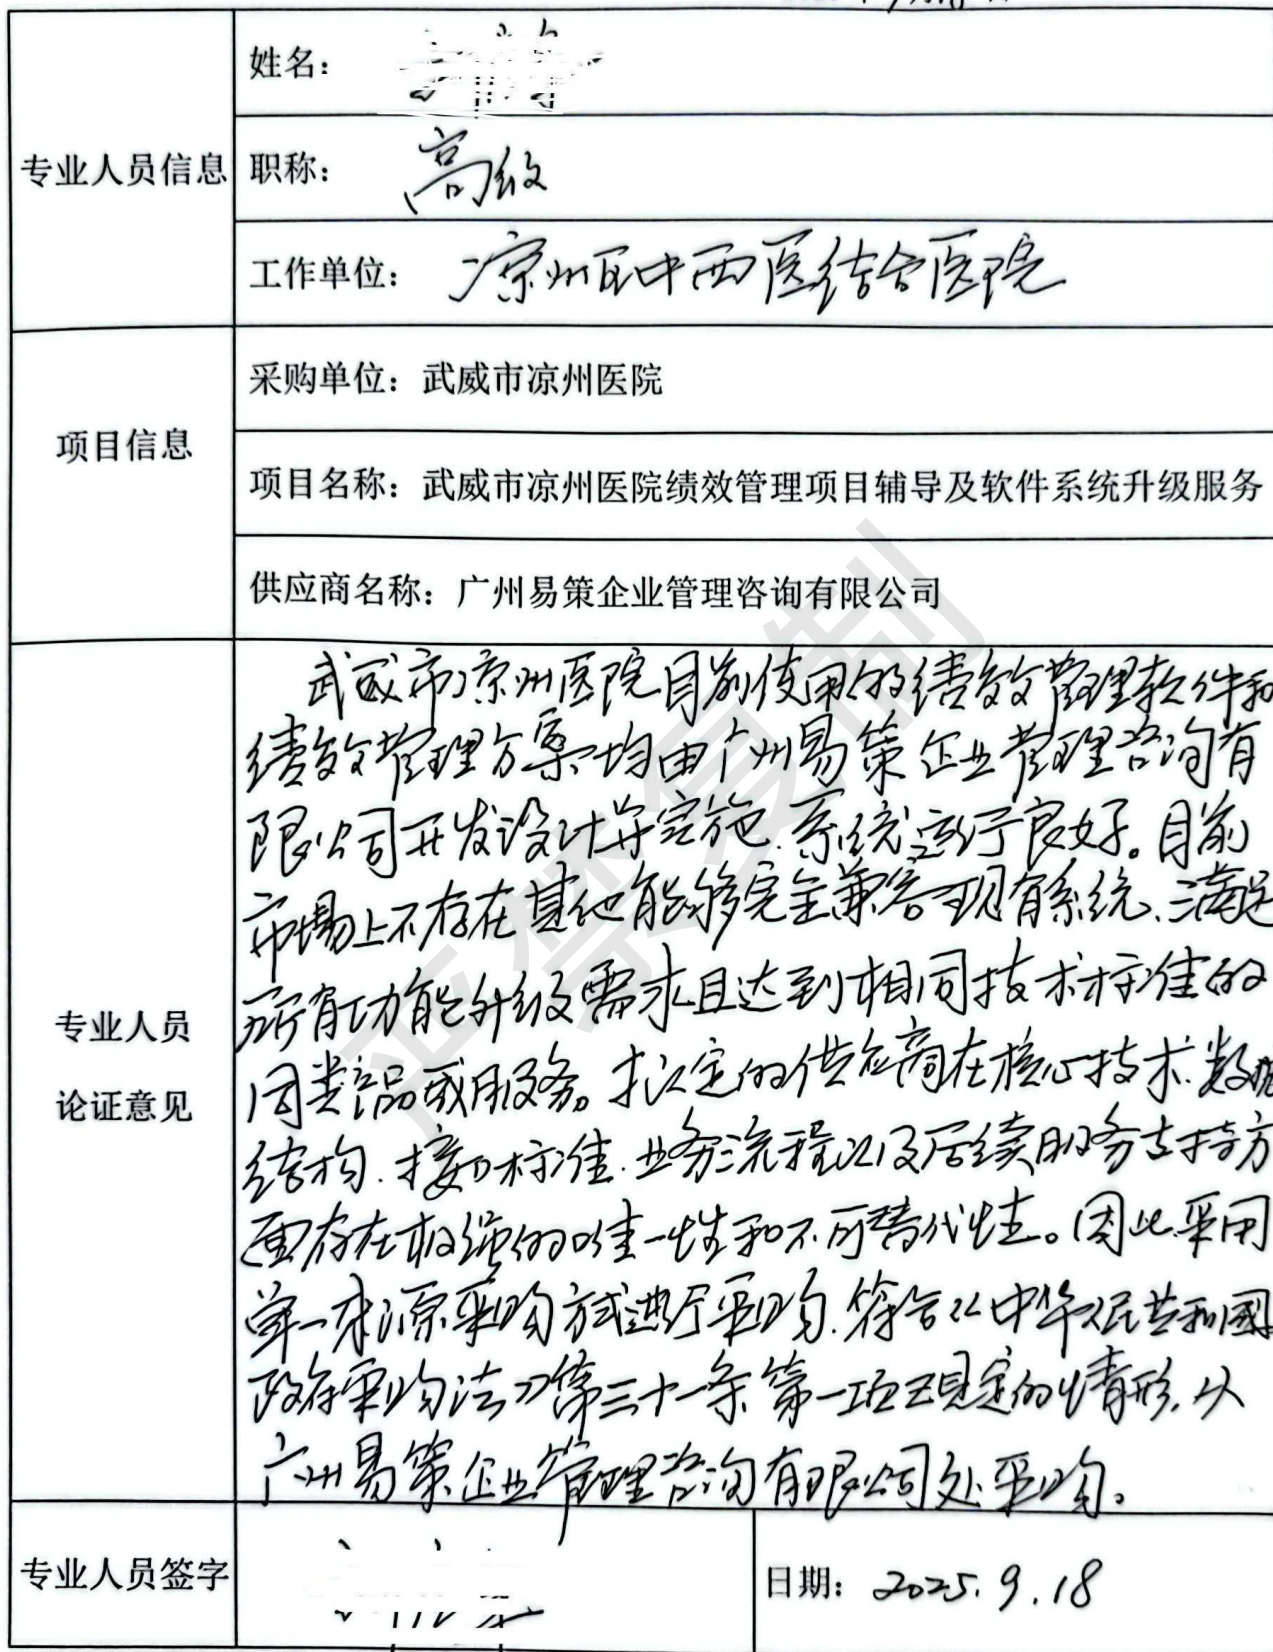 专业人员信息
姓名：
职称：高级
工作单位：凉州区中西医结合医院
项目信息
采购单位：武威市凉州医院
项目名称：武威市凉州医院绩效管理项目辅导及软件系统升级服务
供应商名称：广州易策企业管理咨询有限公司
专业人员
论证意见
武威市凉州医院目前使用的绩效管理软件和
绩效管理方案均由广州易策企业管理咨询有
限公司开发设计并实施、系统运行良好。目前
市场上不存在其他能够完全兼容现有系统、满足
所有功能升级需求且达到相同技术标准的
同类产品或服务。拟定的供应商在核心技术、数据
结构、接口标准、业务流程以及后续服务支持方
面存在极强的唯一性和不可替代性。因此采用
单一来源采购方式进行采购，符合《中华人民共和國
政府采购法》第三十一条第一项规定的情形，从
广州易策企业管理咨询有限公司处采购。
专业人员签字
日期：2025.9.18
严禁复制